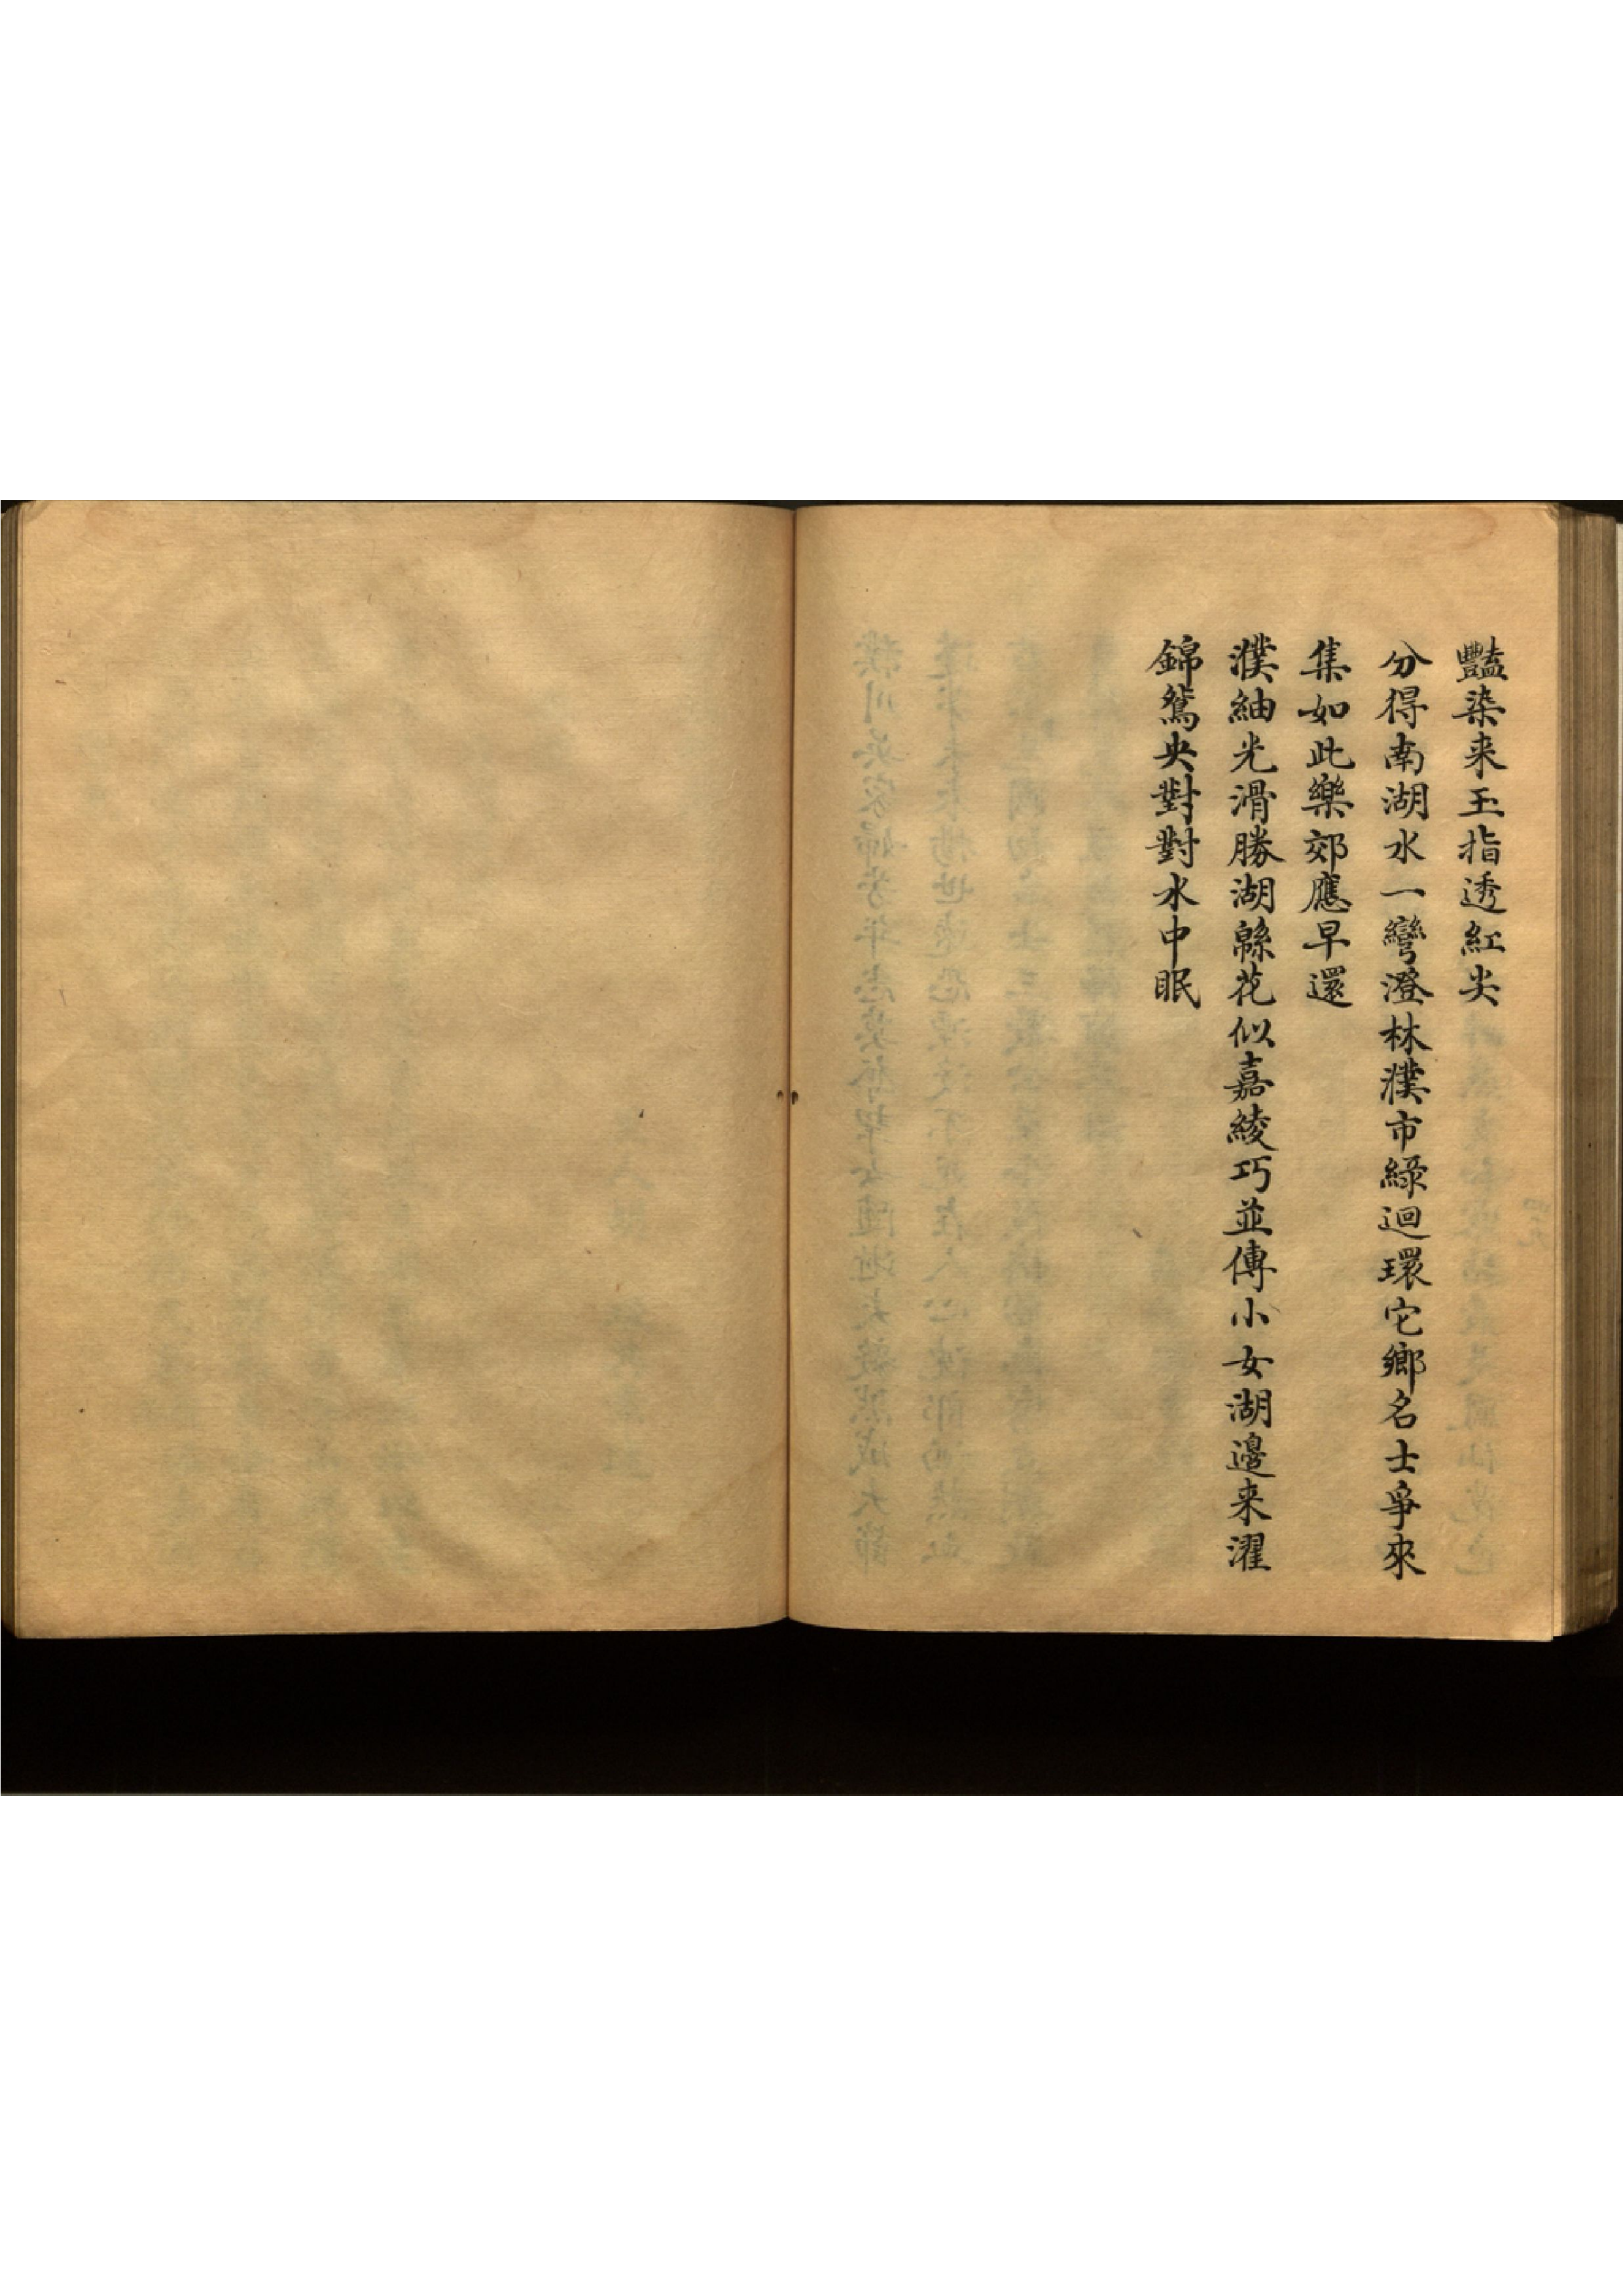 豔染来玉指透紅尖
分得南湖水一彎澄林濮市綠迴環它鄉名士爭來
集如此樂郊應早還
濮紬光滑勝湖緜花似嘉綾巧並傳小女湖邊来濯
錦鴛央對對水中眠